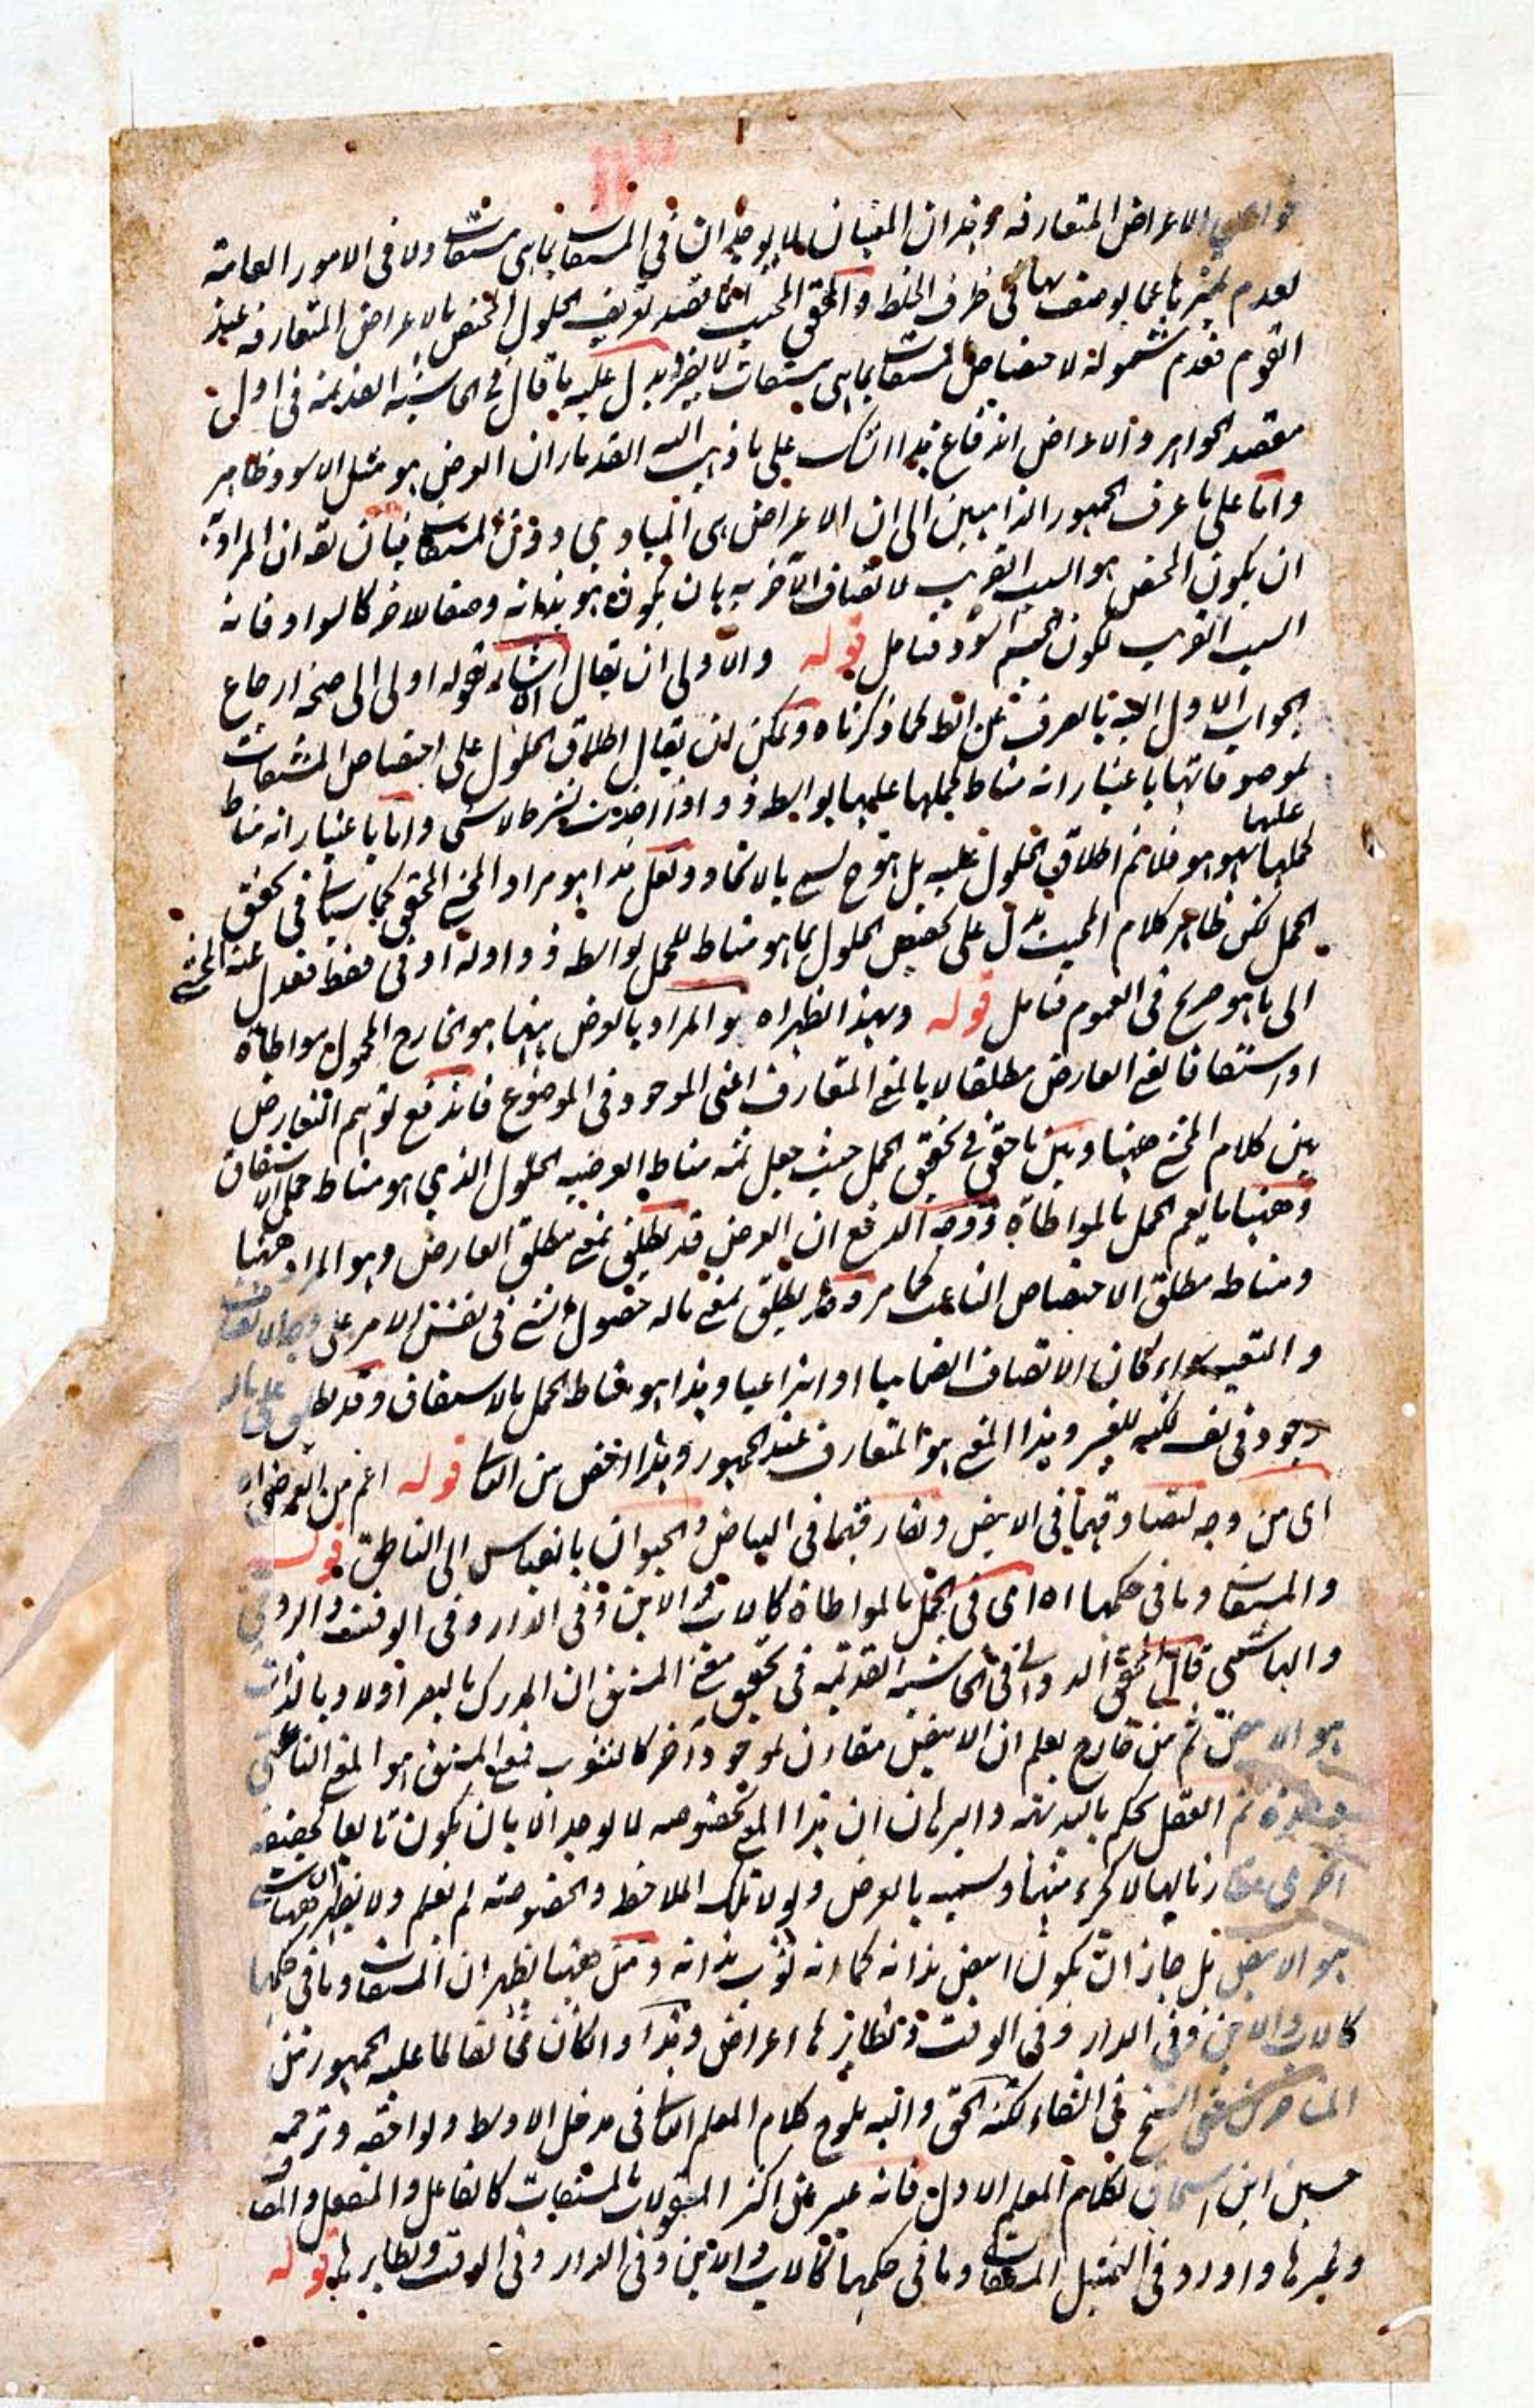 الاعراض المتعارفه وهذان المعنيان لا يوجدان في المشتقات بما هي مشتقات ولا في الامور العامة
لعدم تميزها عما يوصف بها في ظرف الخلط والمحقق المجيب انما قصد تعريف الحلول المختص بالاعراض المتعارفه عند
القوم فعدم شموله لاختصاص المشتقات بما هي مشتقات لا يضر ويدل عليه ما قال في الحاشية القديمة في اول
مقصد الجواهر والاعراض اندفاع هذا الشك على ما ذهب اليه القدماء ان العرض هو مثل الاسود ظاهر
واما على ما عرف الجمهور الذاهبين الى ان الاعراض هي المبادي دون المشتقات فبان يقه ان المراد به
ان يكون المختص هو السبب القريب لاتصاف الآخر به بان يكون هو بذاته وصفا للاخر كالسواد فانه
السبب القريب لكون الجسم اسود فتامل قوله والاولى ان يقال اه اشار بقوله اولى الى صحة ارجاع
الجواب الاول اليه بالصرف عن الظ لما ذكرناه ويمكن ان يقال اطلاق الحلول على اختصاص المشتقات
لموصوفاتها باعتبار انه مناط لحملها عليها بواسطة ذو اذا اخذت بشرط لا شي واما باعتبار انه مناط
لحملها عليها بهو هو فلا نم اطلاق الحلول عليه بل هو ح يسمى بالاتحاد ولعل هذا هو مراد المحشي المحقق كما سيأتي في تحقيق
الحمل لكن ظاهر كلام المجيب يدل على تخصيص الحلول بما هو مناط للحمل بواسطة ذو اوله او في فقط فعدل عنه المحشي
الى ما هو صريح في العموم فتامل قوله وبهذا يظهر اه والمراد بالعرض ههنا هو الخارج المحمول مواطاة
او اشتقاقا يعني العارض مطلقا لا بالمعنى المتعارف اعني الموجود في الموضوع فاندفع توهم التعارض
بين كلام المحشي ههنا وبين ما حقق في تحقيق الحمل حيث جعل ثمه مناط العرضية الحلول الذي هو مناط حمل الاشتقاق
وههنا ما يعم الحمل بالمواطاة ووجه الدفع ان العرض قد يطلق بمعنى مطلق العارض وهو المراد ههنا
ومناطه مطلق الاختصاص الناعت كما مر وقد يطلق بمعنى ماله حصول لشئ في نفس الامر على وجه الاتصاف
والتقييد سواء كان الاتصاف انضماميا او انتزاعيا وهذا هو مناط الحمل بالاشتقاق وقد يطلق على ماله
وجود في نفسه لكنه للغير وهذا المعنى هو المتعارف عند الجمهور وهذا اخص من الثاني قوله اعم من العرضي اه
اي من وجه لتصادقهما في الابيض وتفارقهما في البياض والحيوان بالقياس الى الناطق قوله
والمشتقات وما في حكمها اه اي في الحمل بالمواطاة كالاب والابن وفي الدار وفي الوقت والرومي
والهاشمي قال المحقق الدواني في الحاشية القديمة في تحقيق معنى المشتق ان المدرك بالبصر اولا وبالذات
هو الابيض ثم من خارج يعلم ان الابيض مقارن لموجود آخر كالثوب فمعنى المشتق هو المعنى الناعتي
وحده ثم العقل يحكم بالبديهة والبرهان ان هذا المعنى بخصوصه لا يوجد الا بان يكون تابعا لحقيقة
اخرى مقارنا لها لا كجزء منها ويسميه بالعرض ولولا تلك الملاحظة والخصوصية لم نعلم ولا يظهر ان ههنا شيئا
هو الابيض بل جاز ان يكون ابيض بذاته كما انه ثوب بذاته ومن ههنا يظهر ان المشتقات وما في حكمها
كالاب والابن وفي الدار وفي الوقت ونظائرها اعراض وهذا وان كان مخالفا لما عليه الجمهور من
المتأخرين حتى الشيخ في الشفاء لكنه الحق واليه يلوح كلام المعلم الثاني في مدخل الاوسط ويوافقه ترجمة
حسين ابن اسحاق لكلام المعلم الاول فانه عبر عن اكثر المقولات بالمشتقات كالفاعل والمنفعل والمضاف
وغيرها واورد في التمثيل المشتقات وما في حكمها كالاب والابن وفي الدار وفي الوقت ونظايرها قوله